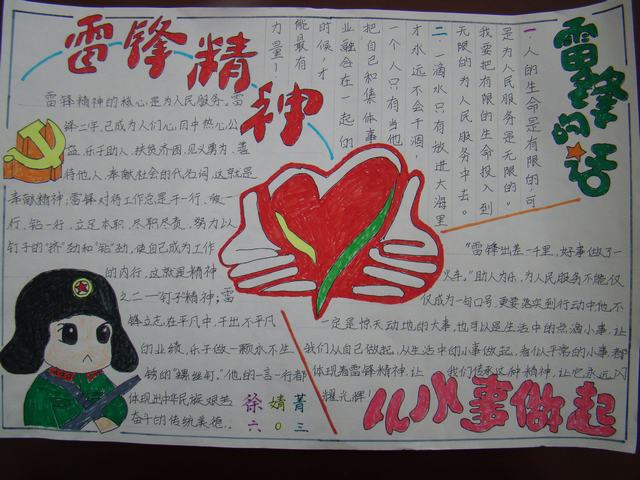 雷锋精神
雷锋精神的核心,是为人民服务。雷
锋二字,已成为人们心目中热心公
益、乐于助人、扶贫济困、见义勇为、善
待他人、奉献社会的代名词。这就是
奉献精神;雷锋对待工作总是干一行、
行、钻一行,立足本职、尽职尽责,努力以
钉子的"挤"劲和"钻"劲,使自己成为工作
的内行,这就是精神
之二—"钉子精神;雷
锋立志在平凡中,干出不平凡
的业绩,乐于做一颗永不生
锈的"螺丝钉"。他的言行都
体现出中华民族艰苦
奋斗的传统美德...
徐婧菁
六〇三
雷锋的话
一、人的生命是有限的,可
是为人民服务是无限的。
我要把有限的生命投入到
无限的为人民服务中去。
二、一滴水只有放进大海里
才永远不会干涸,
一个人只有当他
把自己和集体事
业融合在一起的
时候,才
能最有
力量!
"雷锋出差一千里,好事做了一
火车。"助人为乐,为人民服务不能仅
仅成为一句口号,更要落实到行动中他,不
一定是惊天动地的大事,也可以是生活中的点滴小事,让
我们从自己做起,从生活中的小事做起,看似平常的小事,都
体现着雷锋精神,让我们传承这种精神,让它永远闪
耀光辉!
从小事做起